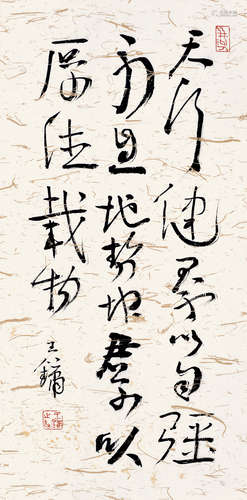 天行健君子以自彊
不息地勢坤君子以
厚德載物
王鏞